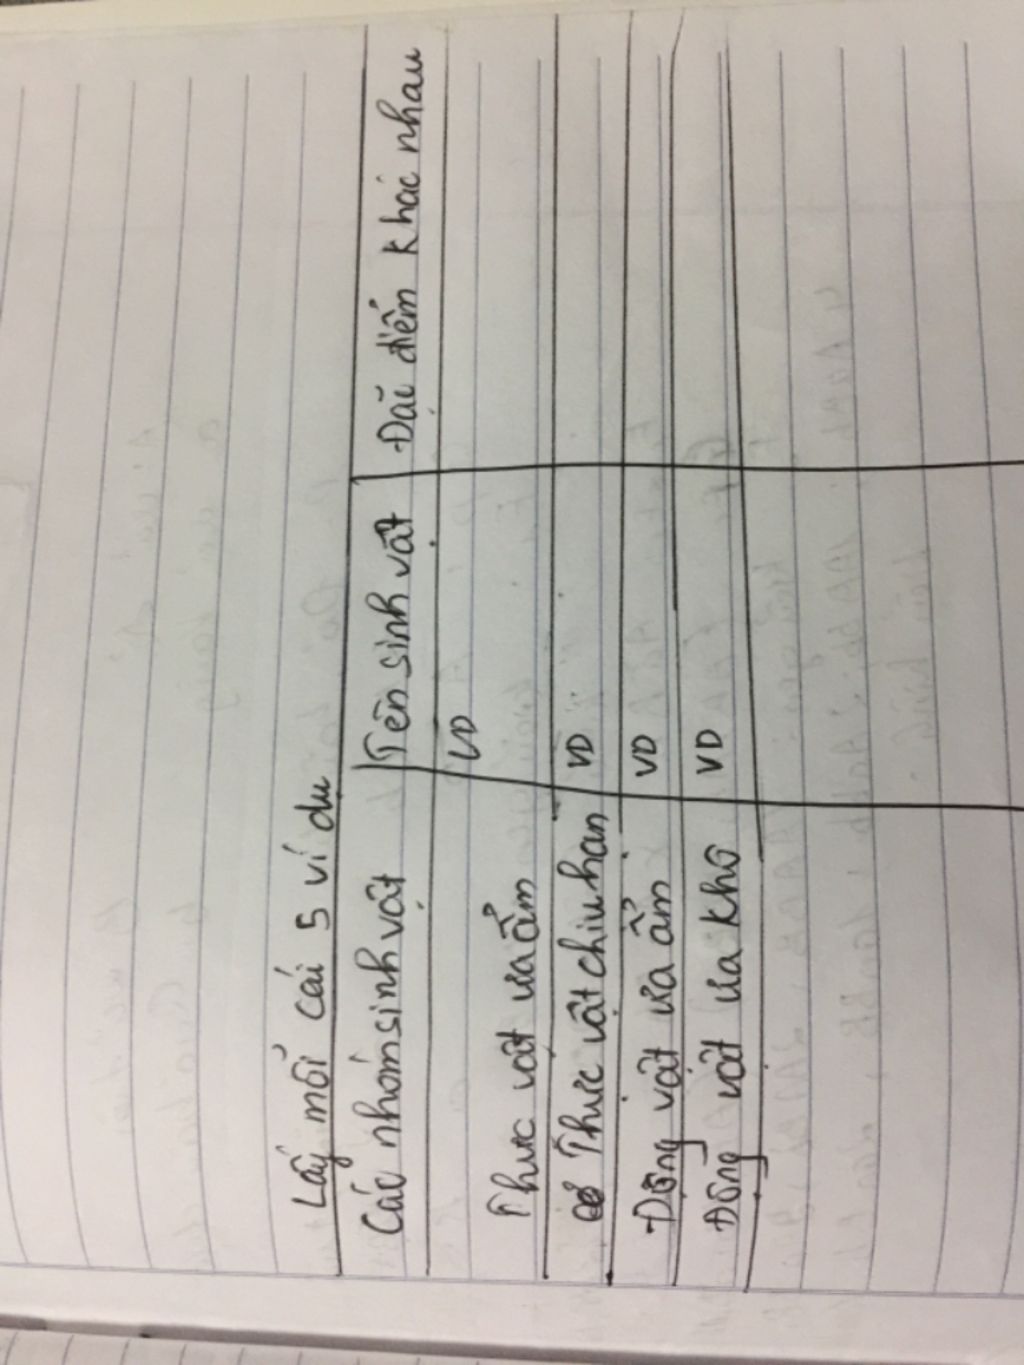 Lấy mỗi cái 5 ví dụ
Các nhóm sinh vật Tên sinh vật Đặc điểm khác nhau
Thực vật ưa ẩm VD
Thực vật chịu hạn VD
Động vật ưa ẩm VD
Động vật ưa khô VD